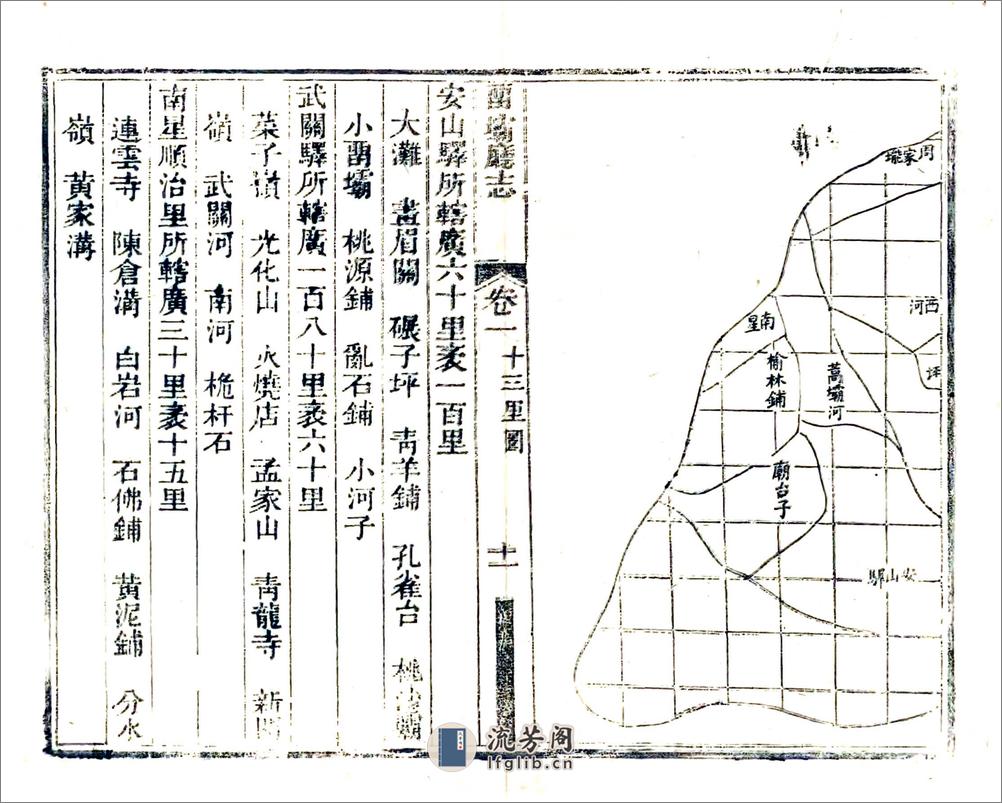 周家灘
西河
坪
南星
榆林鋪
蒿壩河
廟台子
安山驛
留壩廳志
卷一
十三里圖
十一
安山驛所轄廣六十里袤一百里
大灘 畫眉關 碾子坪 青羊鋪 孔雀台
小畱壩 桃源鋪 亂石鋪 小河子
武關驛所轄廣一百八十里袤六十里
菜子嶺 光化山 火燒店 孟家山 青龍寺 新開
嶺 武關河 南河 桅杆石
南星順治里所轄廣三十里袤十五里
連雲寺 陳倉溝 白岩河 石佛鋪 黃泥鋪 分水
嶺 黃家溝
流芳阁
lfglib.cn